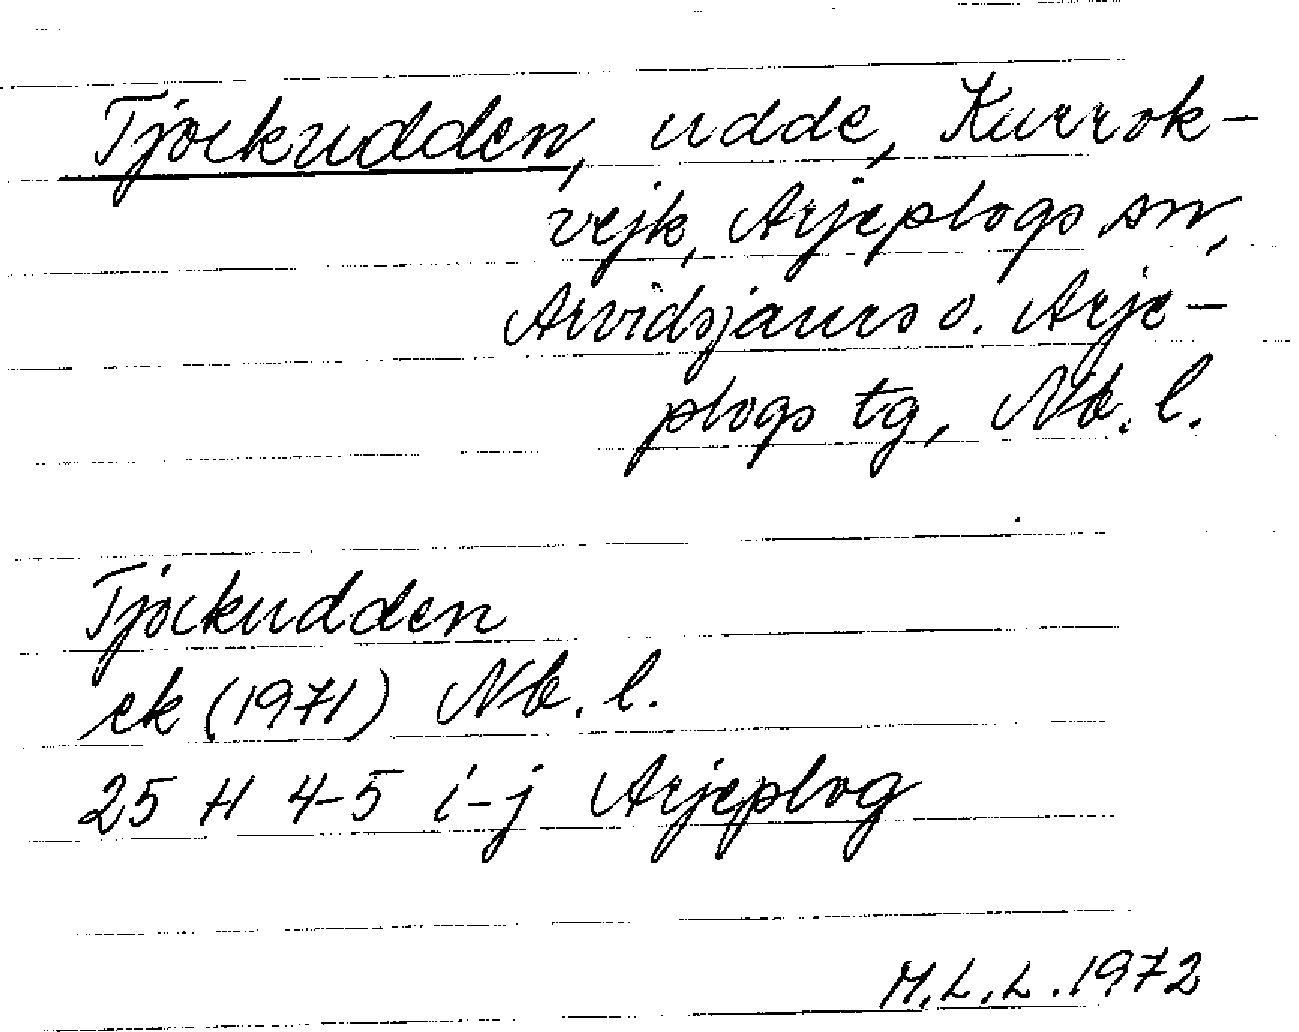 Tjockudden, udde, Kurrok-
vejk, Arjeplogs sn,
Arvidsjaurs o. Arje-
plogs tg, Nb. l.
Tjockudden
ek (1971) Nb. l.
25 H 4-5 i-j Arjeplog
M.L.L. 1972